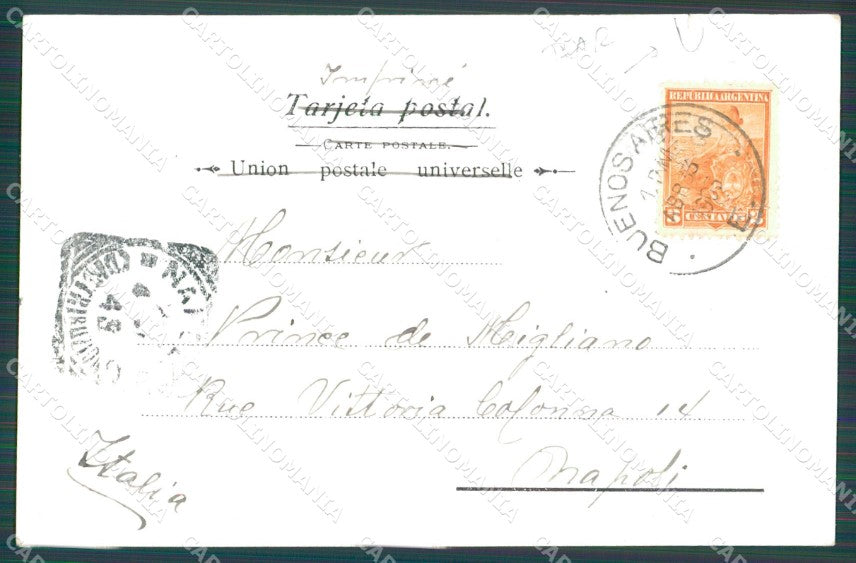 Imprimé
Tarjeta postal.
CARTE POSTALE.
Union postale universelle
REPUBLICA ARGENTINA
5 CENTAVOS 5
BUENOS AIRES
Monsieur
Prince de Migliano
Rue Vittoria Colonna 14
Napoli
Italia
43
CARTOLINOMANIA